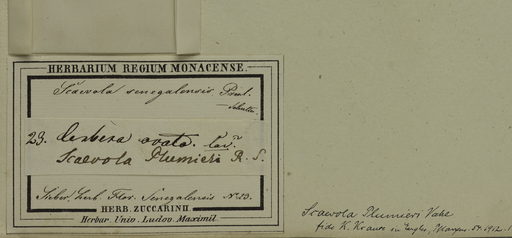 HERBARIUM REGIUM MONACENSE.
Scaevola senegalensis Presl.
Schultes
23. Cerbera ovata. Cav.
Scaevola Plumieri R. S.
Sieber, herb. Flor. Senegalensis No. 23.
HERB. ZUCCARINII.
Herbar. Univ. Ludov. Maximil.
Scaevola Plumieri Vahl
fide K. Krause in Engler, Pflanzenr. 54. 1912.